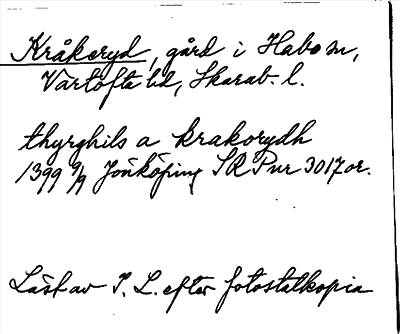 Kråkeryd, gård i Habo sn,
Vartofta hd, Skarab. l.
thyrghils a krakorydh
1399 9/9 Jönköping SRP nr 3017 or.
Läst av I. L. efter fotostatkopia